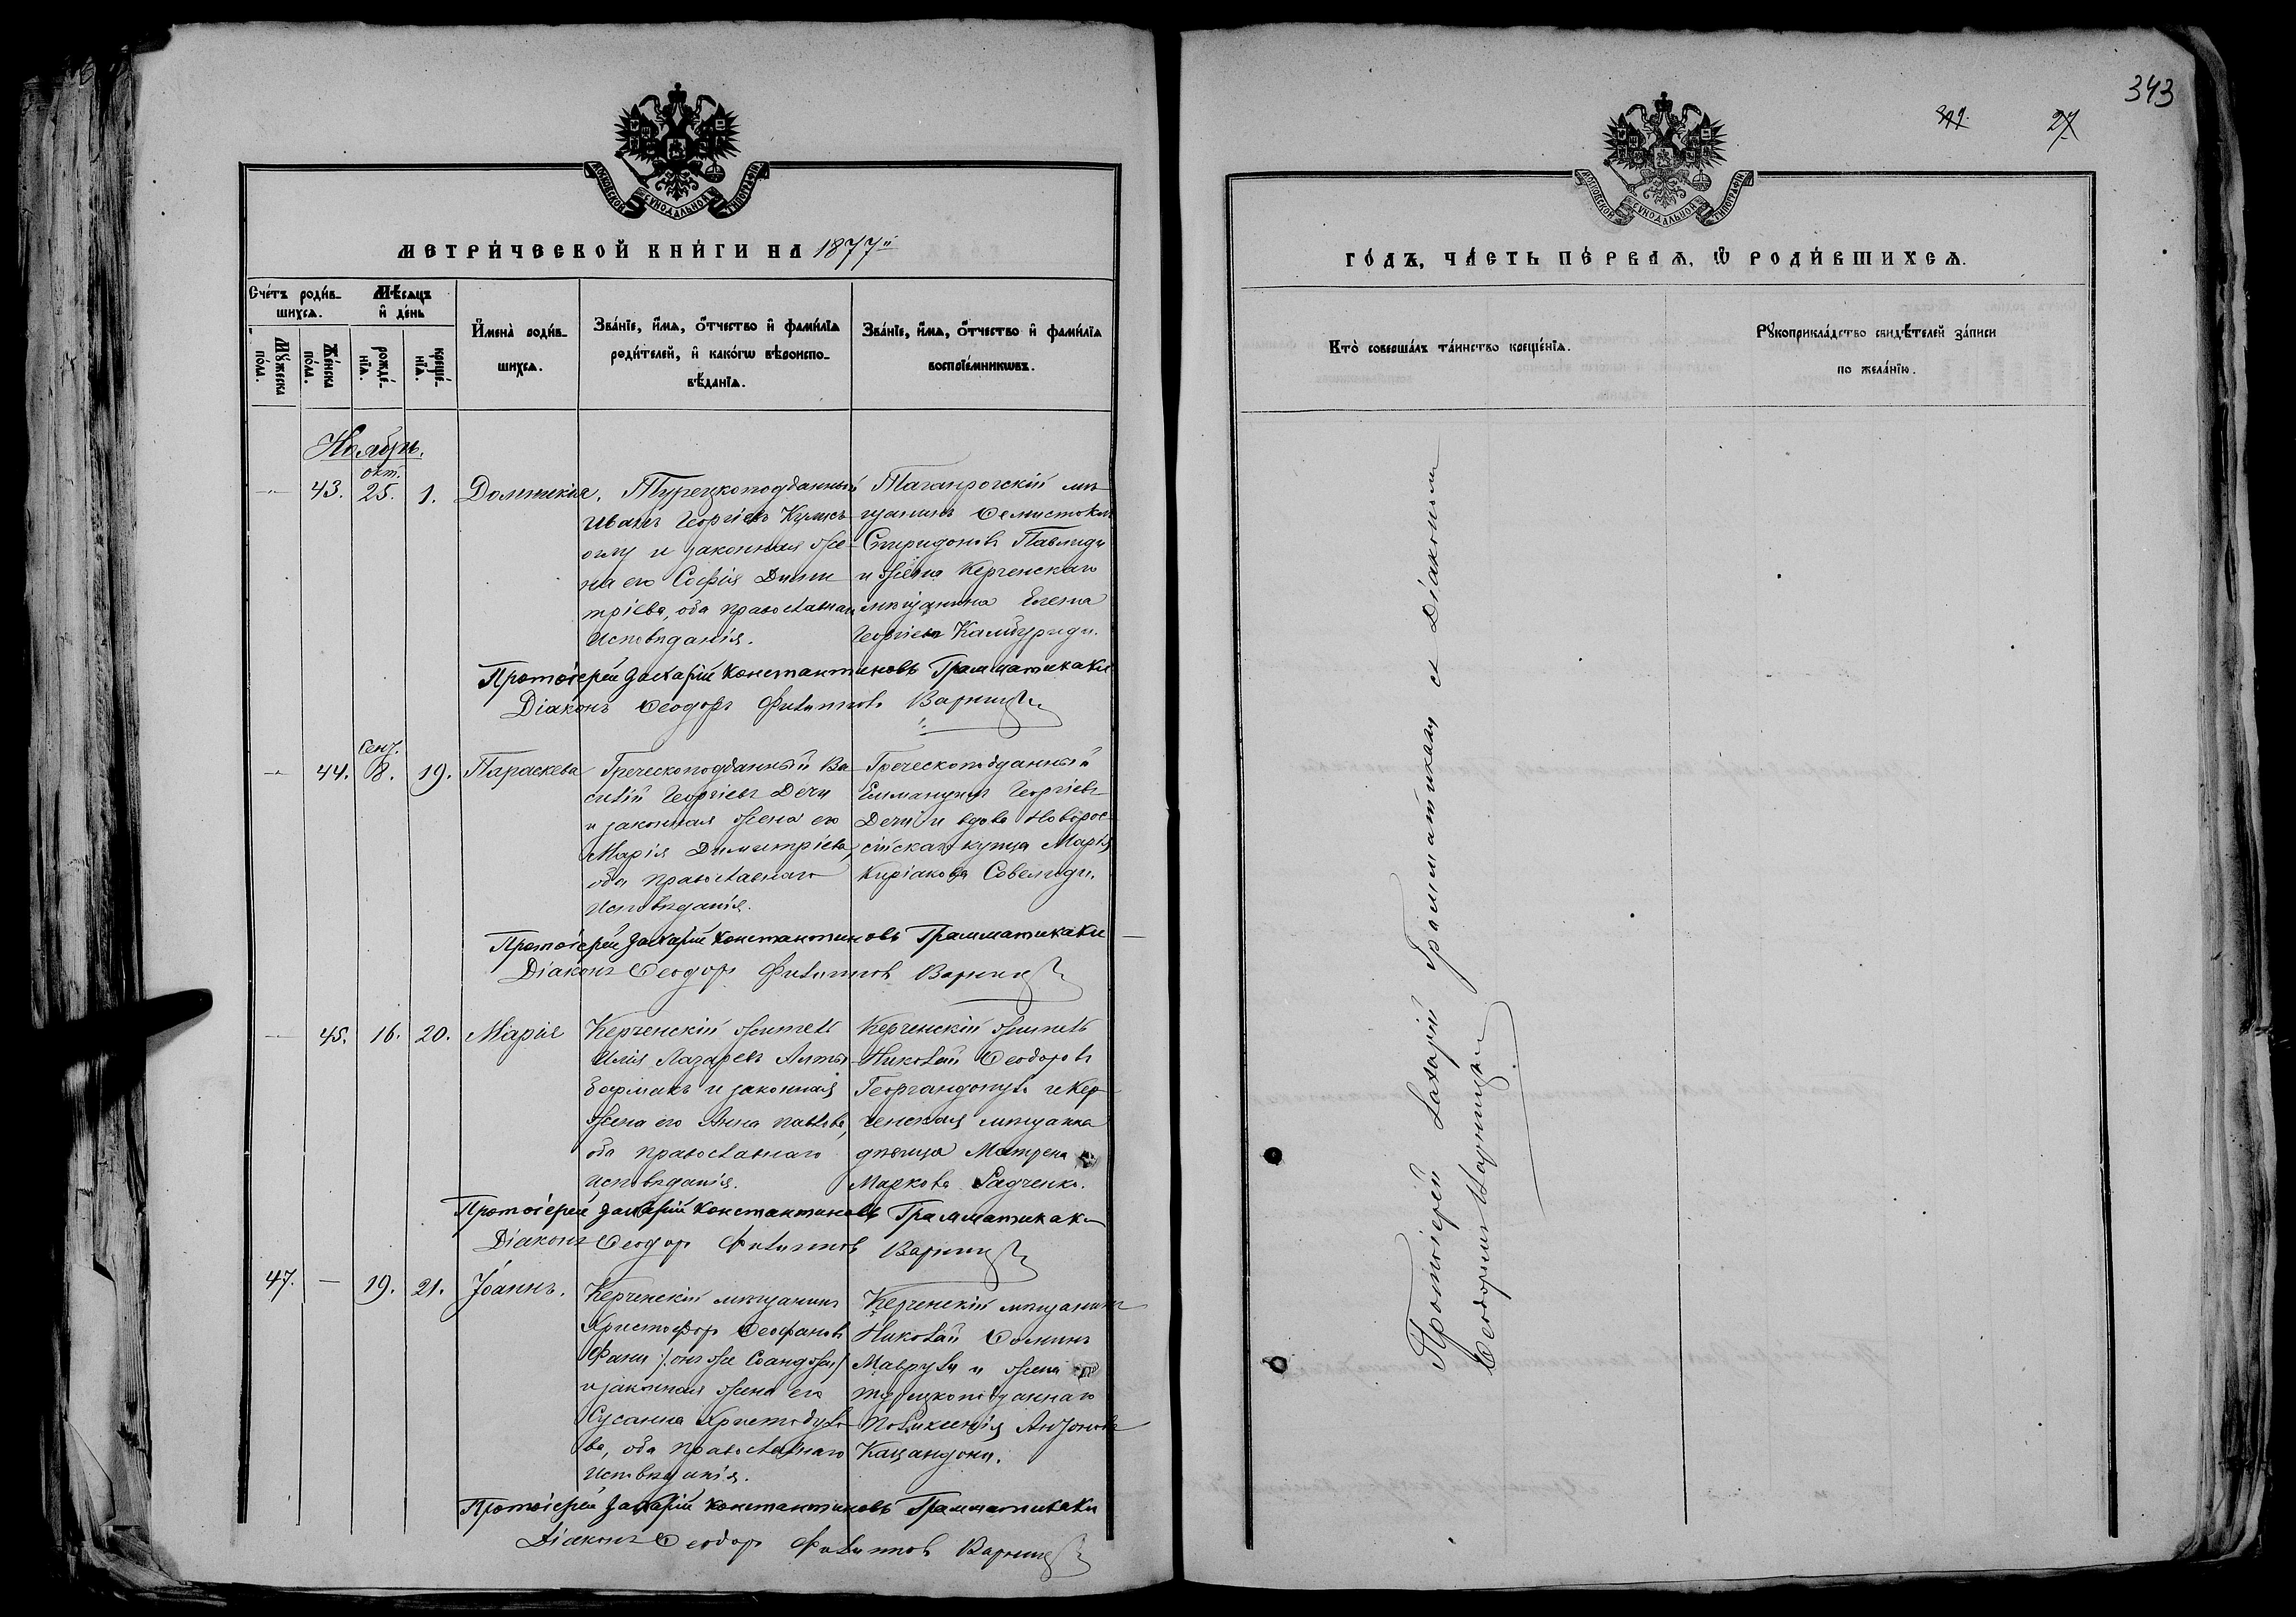 МОСКОВСКОЙ СѴНОДАЛЬНОЙ ТИПОГРАФІИ
МЕТРИ́ЧЕСКОЙ КНИ́ГИ НА 1877й
Сче́тъ роди́вшихсѧ.
Мѣ́сѧцъ и҆ де́нь
Мꙋ́жеска по́ла.
Же́нска по́ла.
рожде́нїѧ.
креще́нїѧ.
И҆мена̀ роди́вшихсѧ.
Зва́нїе, и҆́мѧ, ѻ҆́тчество и҆ фами́лїѧ
роди́телей, и҆ како́гѡ вѣроиспо-
вѣ́данїѧ.
Зва́нїе, и҆́мѧ, ѻ҆́тчество и҆ фами́лїѧ
воспрїе́мникѡвъ.
Ноябрь.
— 43. окт. 25. 1. Домникія.
Турецкоподданный
Иванъ Георгіевъ
оглу и законная же-
на его Софія Дими
тріева, оба православнаго
Исповѣданія.
Таганрогскій мѣ-
щанинъ Ѳемистокл
Спиридоновъ Павлиди
и жена Керченскаго
мѣщанина Елена
Георгіева Камбуриди.
Протоіерей Захарій Константиновъ Грамматикаки
Діаконъ Ѳеодоръ Филипповъ
— 44. Сент. 8. 19. Параскева
Греческоподданный Ва
силій Георгіевъ Дечи
и законная жена его
Марія Димитріева,
оба православнаго
Исповѣданія.
Греческоподданный
Еммануилъ Георгіевъ
Дечи и вдова Новорос
сійскаго купца Марія
Киріакова Савелиди.
Протоіерей Захарій Константиновъ Грамматикаки
Діаконъ Ѳеодоръ Филипповъ
— 45. 16. 20. Марія
Керченскій житель
Илія Лазаревъ Алты
бармакъ и законная
жена его Анна Павлова,
оба православнаго
Исповѣданія.
Керченскій житель
Николай Ѳеодоровъ
Георгандопуло и Кер-
ченская мѣщанка
дѣвица Матрена
Маркова Радченко.
Протоіерей Захарій Константиновъ Грамматикаки
Діаконъ Ѳеодоръ Филипповъ
47. — 19. 21. Іоаннъ.
Керченскій мѣщанинъ
Христофоръ Ѳеофановъ
Фани /онъ же /
и законная жена его
Сусанна Христодуло
ва, оба православнаго
Исповѣданія.
Керченскій мѣщанинъ
Николай Ѳоминъ
Маврули и жена
турецкоподданнаго
Поликсенія Антонова
Протоіерей Захарій Константиновъ Грамматикаки
Діаконъ Ѳеодоръ Филипповъ
343
27
МОСКОВСКОЙ СѴНОДАЛЬНОЙ ТИПОГРАФІИ
ГО́ДЪ, ЧА́СТЬ ПЕ́РВАѦ, Ѡ҆ РОДИ́ВШИХСѦ.
Кто̀ соверша́лъ та́инство креще́нїѧ.
Рꙋкоприкла́дство свидѣ́телей за́писи
по жела́нїю.
Протоіерей Захарій Грамматикаки съ Діакономъ
Ѳеодоромъ